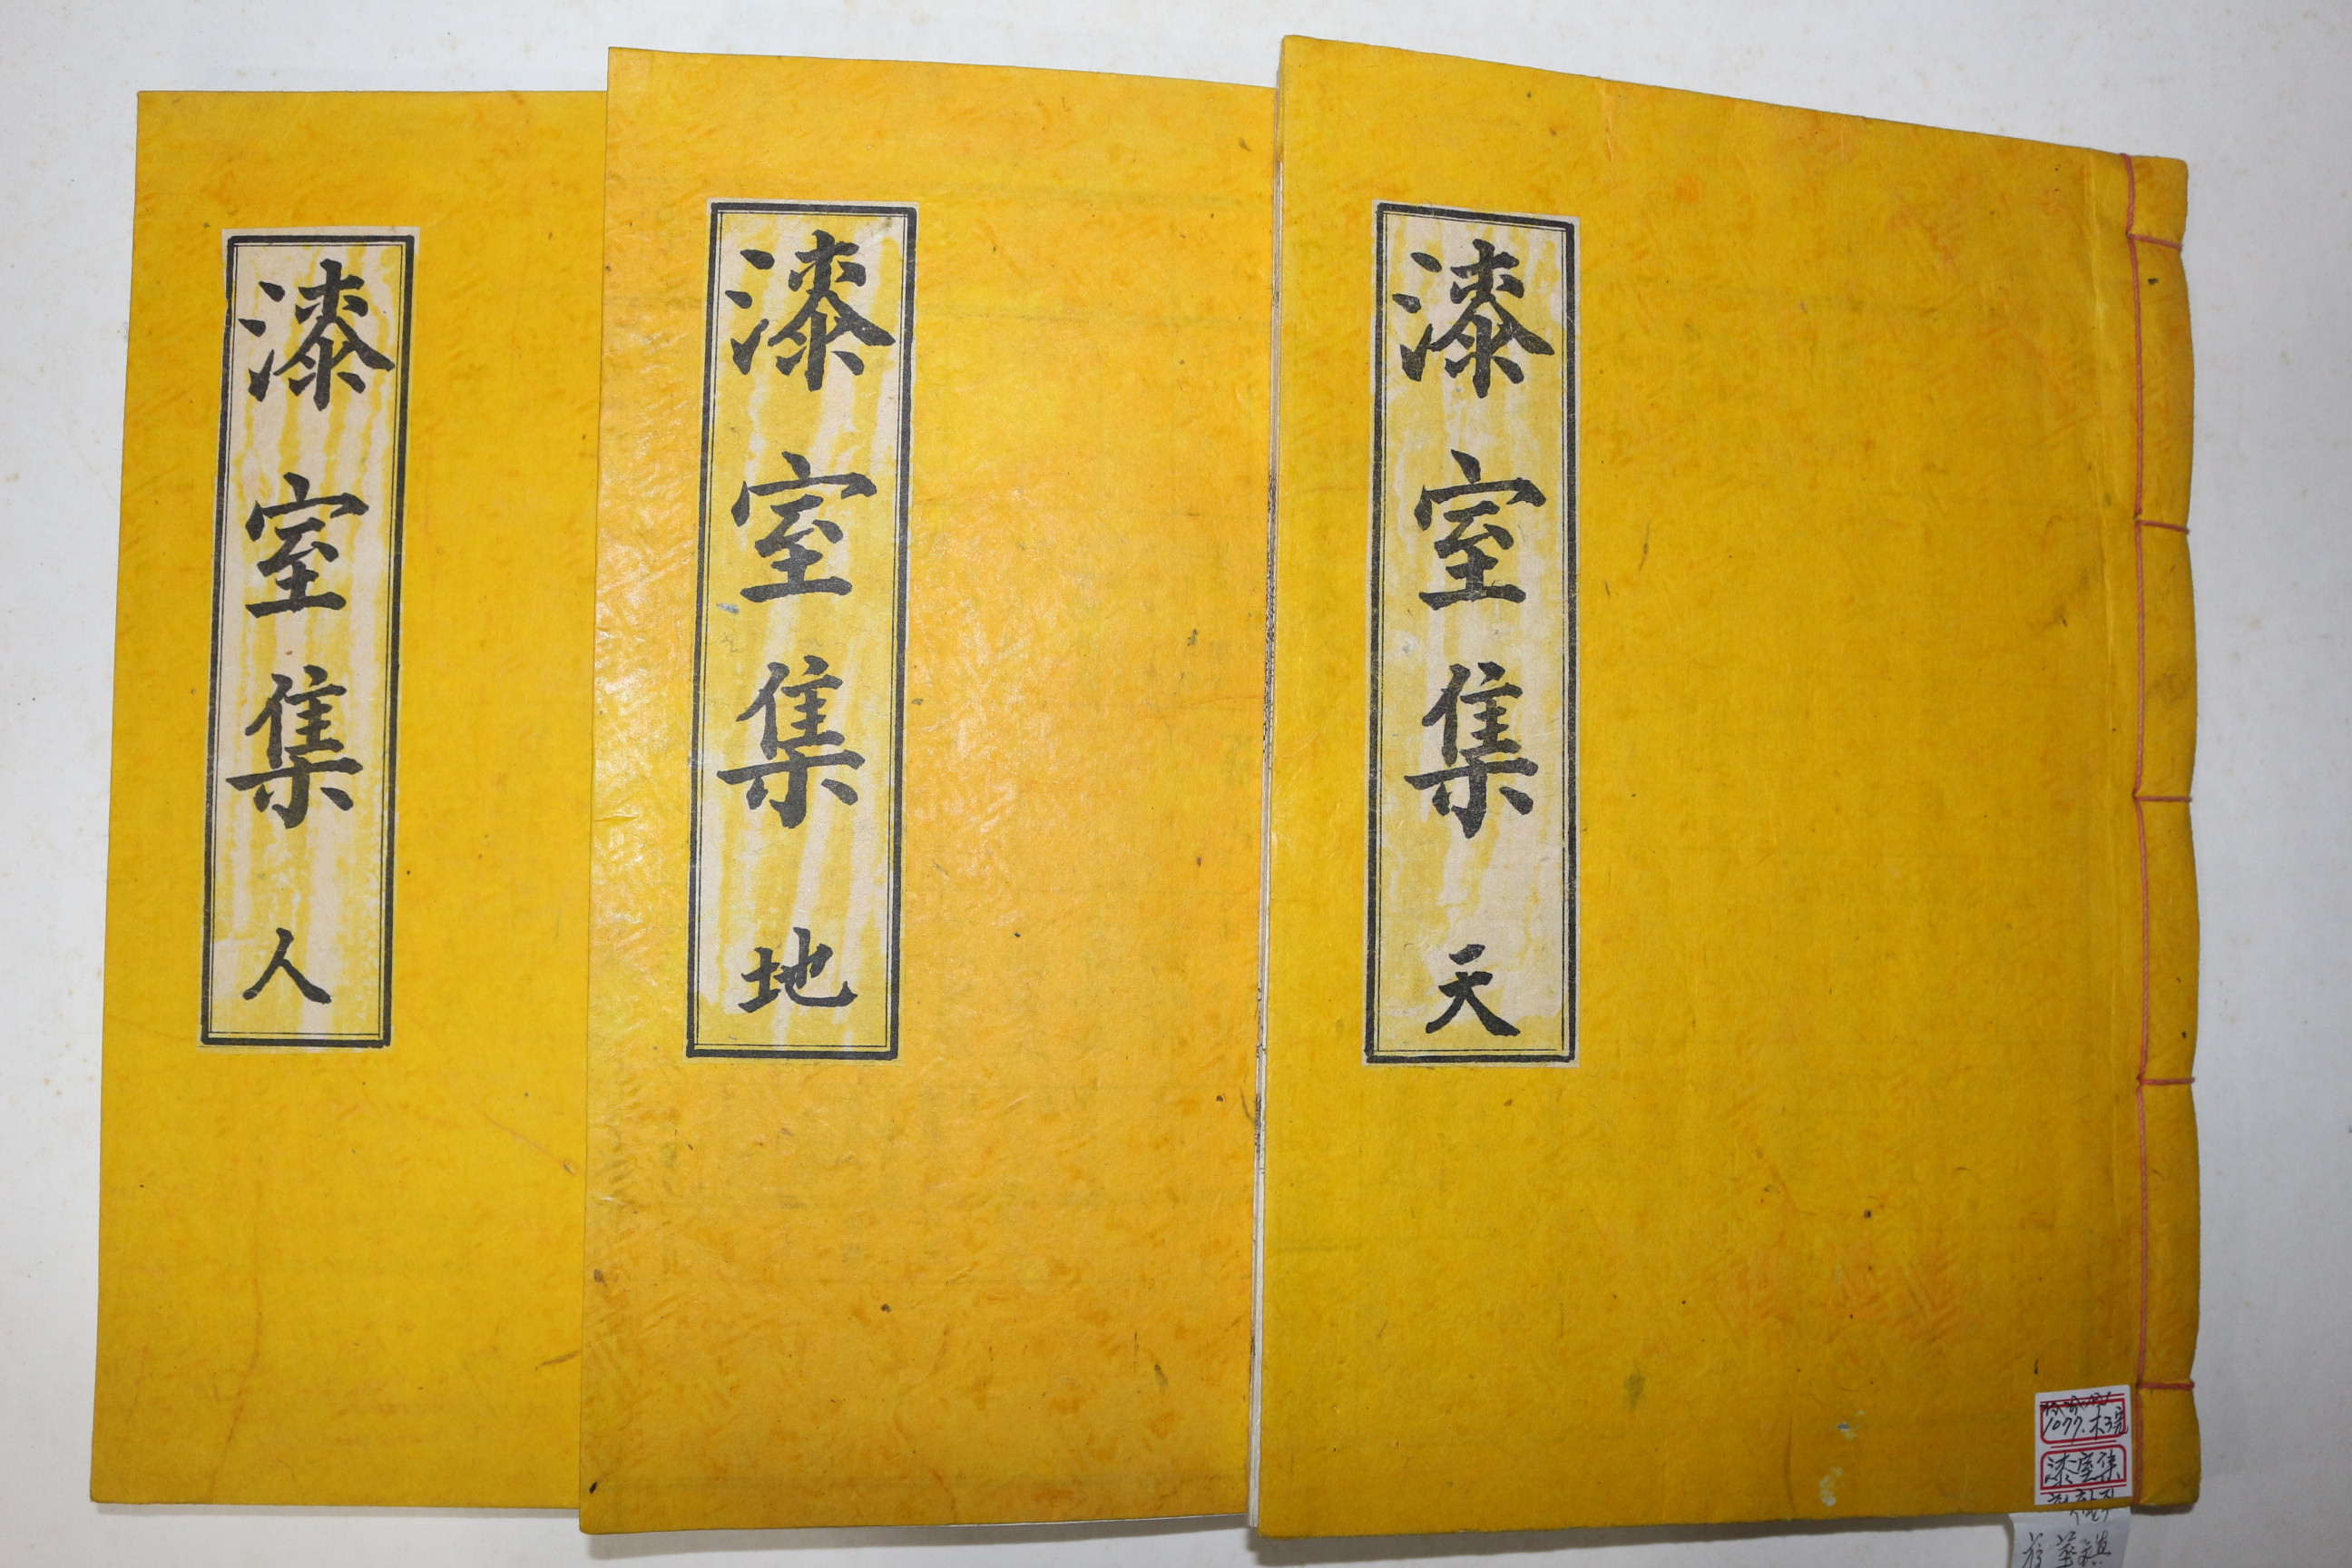 漆室集 天
漆室集 地
漆室集 人
1077.木3完
漆室集